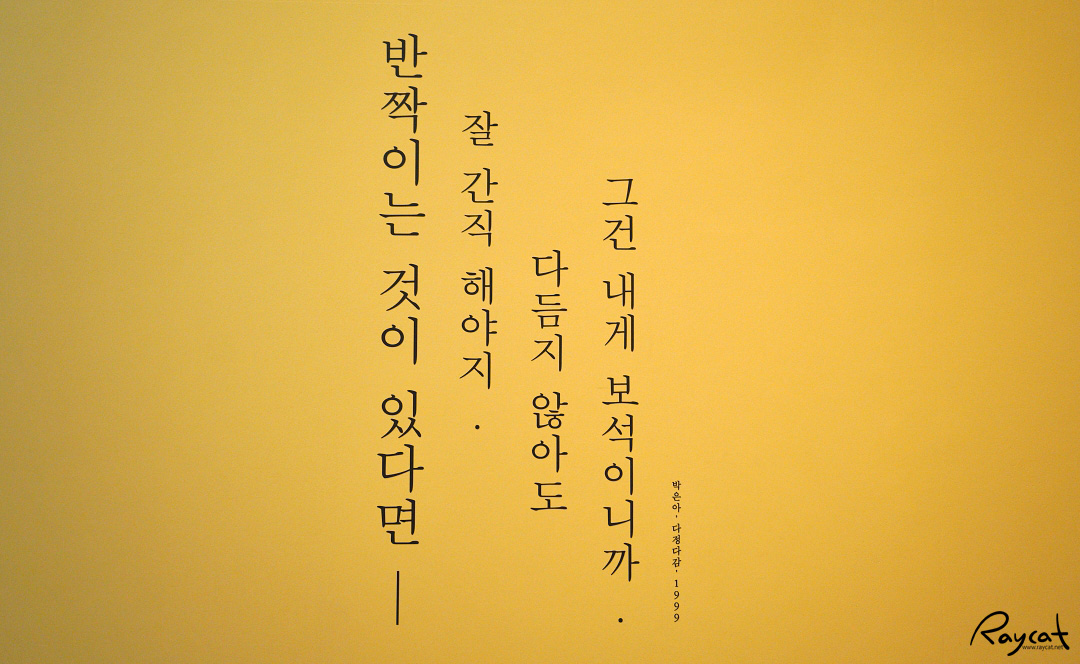 반짝이는 것이 있다면 —
잘 간직 해야지.
다듬지 않아도
그건 내게 보석이니까.
박은아, 다정다감, 1999
Raycat
www.raycat.net